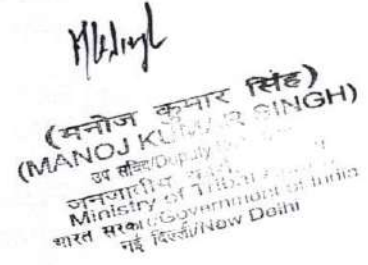 (मनोज कुमार सिंह)
(MANOJ KUMAR SINGH)
उप सचिव/Deputy
जनजातीय
Ministry of Tribal
भारत सरकार/Government of India
नई दिल्ली/New Delhi